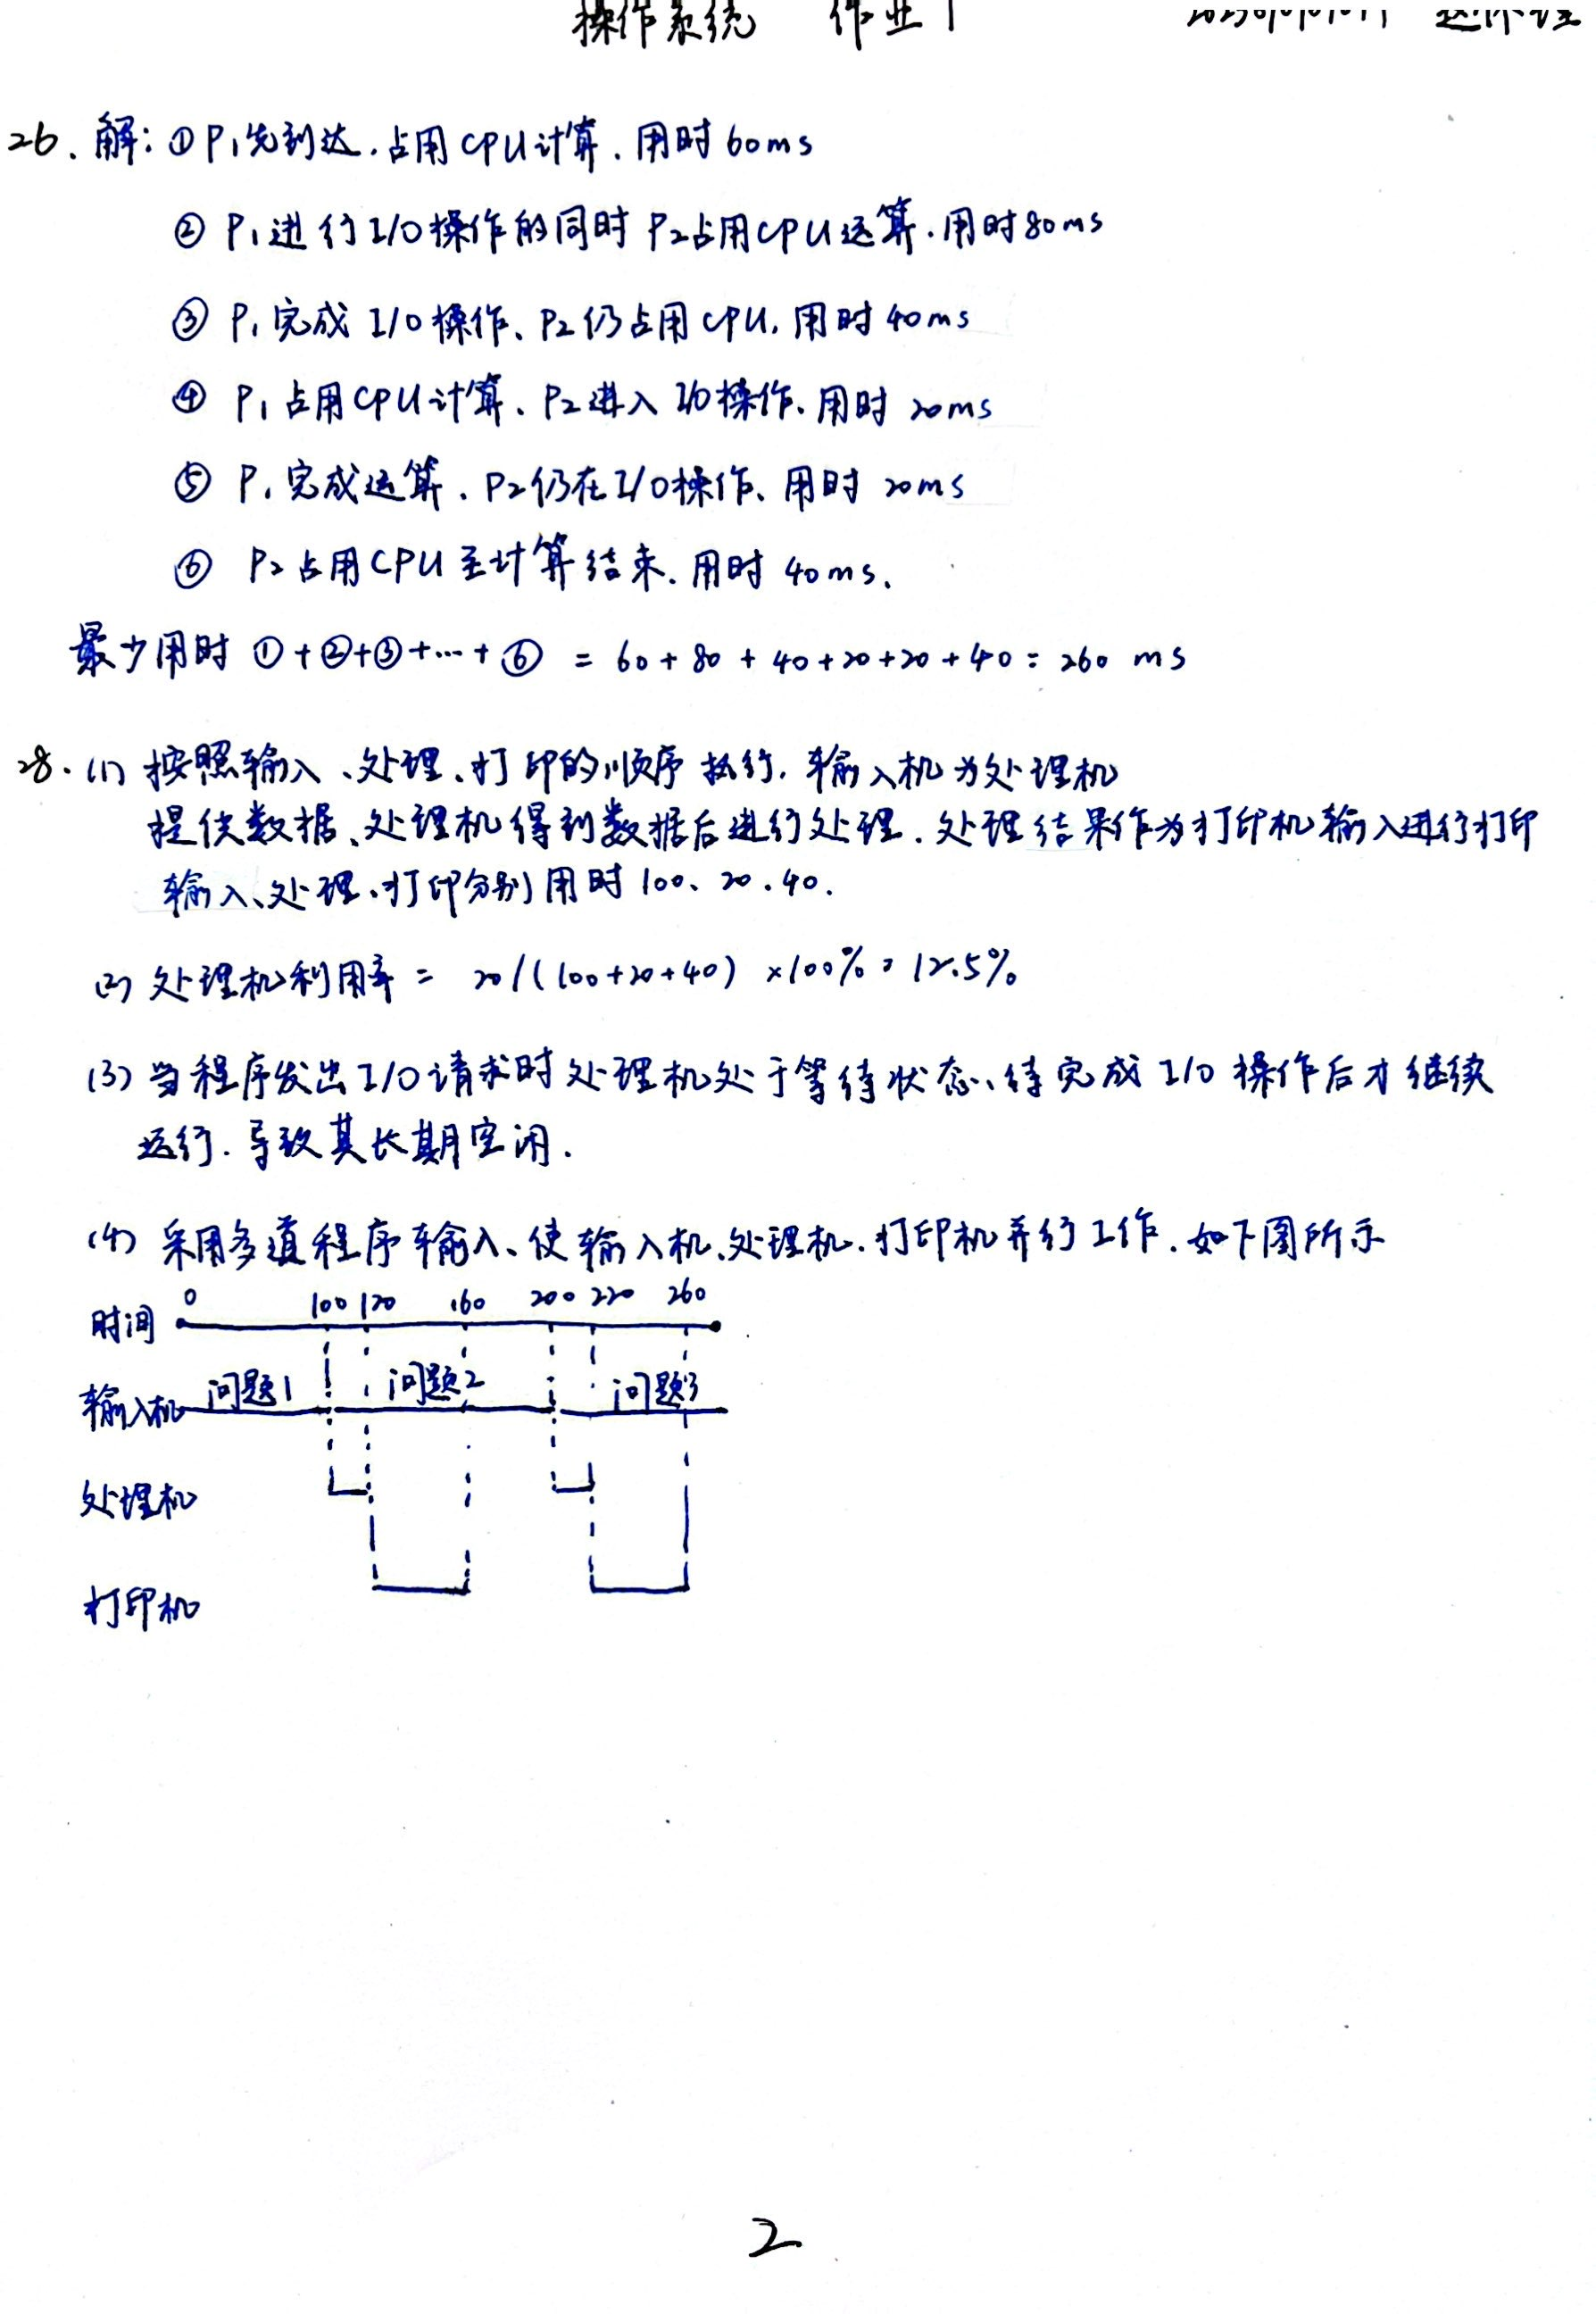 操作系统 作业1
26. 解: ① P₁先到达. 占用CPU计算. 用时60ms
② P₁进行I/O操作的同时 P₂占用CPU运算. 用时80ms
③ P₁完成I/O操作、P₂仍占用CPU. 用时40ms
④ P₁占用CPU计算、P₂进入I/O操作. 用时20ms
⑤ P₁完成运算、P₂仍在I/O操作、用时20ms
⑥ P₂占用CPU至计算结束. 用时40ms.
最少用时 ①+②+③+…+⑥ = 60+80+40+20+20+40=260 ms
28. (1) 按照输入、处理、打印的顺序执行. 输入机为处理机
提供数据、处理机得到数据后进行处理. 处理结果作为打印机输入进行打印
输入、处理、打印分别用时100、20.40.
(2) 处理机利用率 = 20/(100+20+40) ×100%=12.5%
(3) 当程序发出I/O请求时处理机处于等待状态、待完成I/O操作后才继续
运行. 导致其长期空闲.
(4) 采用多道程序输入、使输入机、处理机.打印机并行工作. 如下图所示
0 100 120 160 200 220 260
时间
输入机 问题1 问题2 问题3
处理机
打印机
2